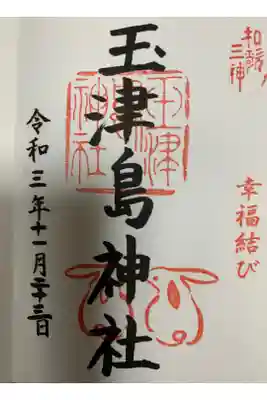 和歌ノ
三神
幸福結び
玉津島神社
玉津
神社
令和三年十一月二十三日